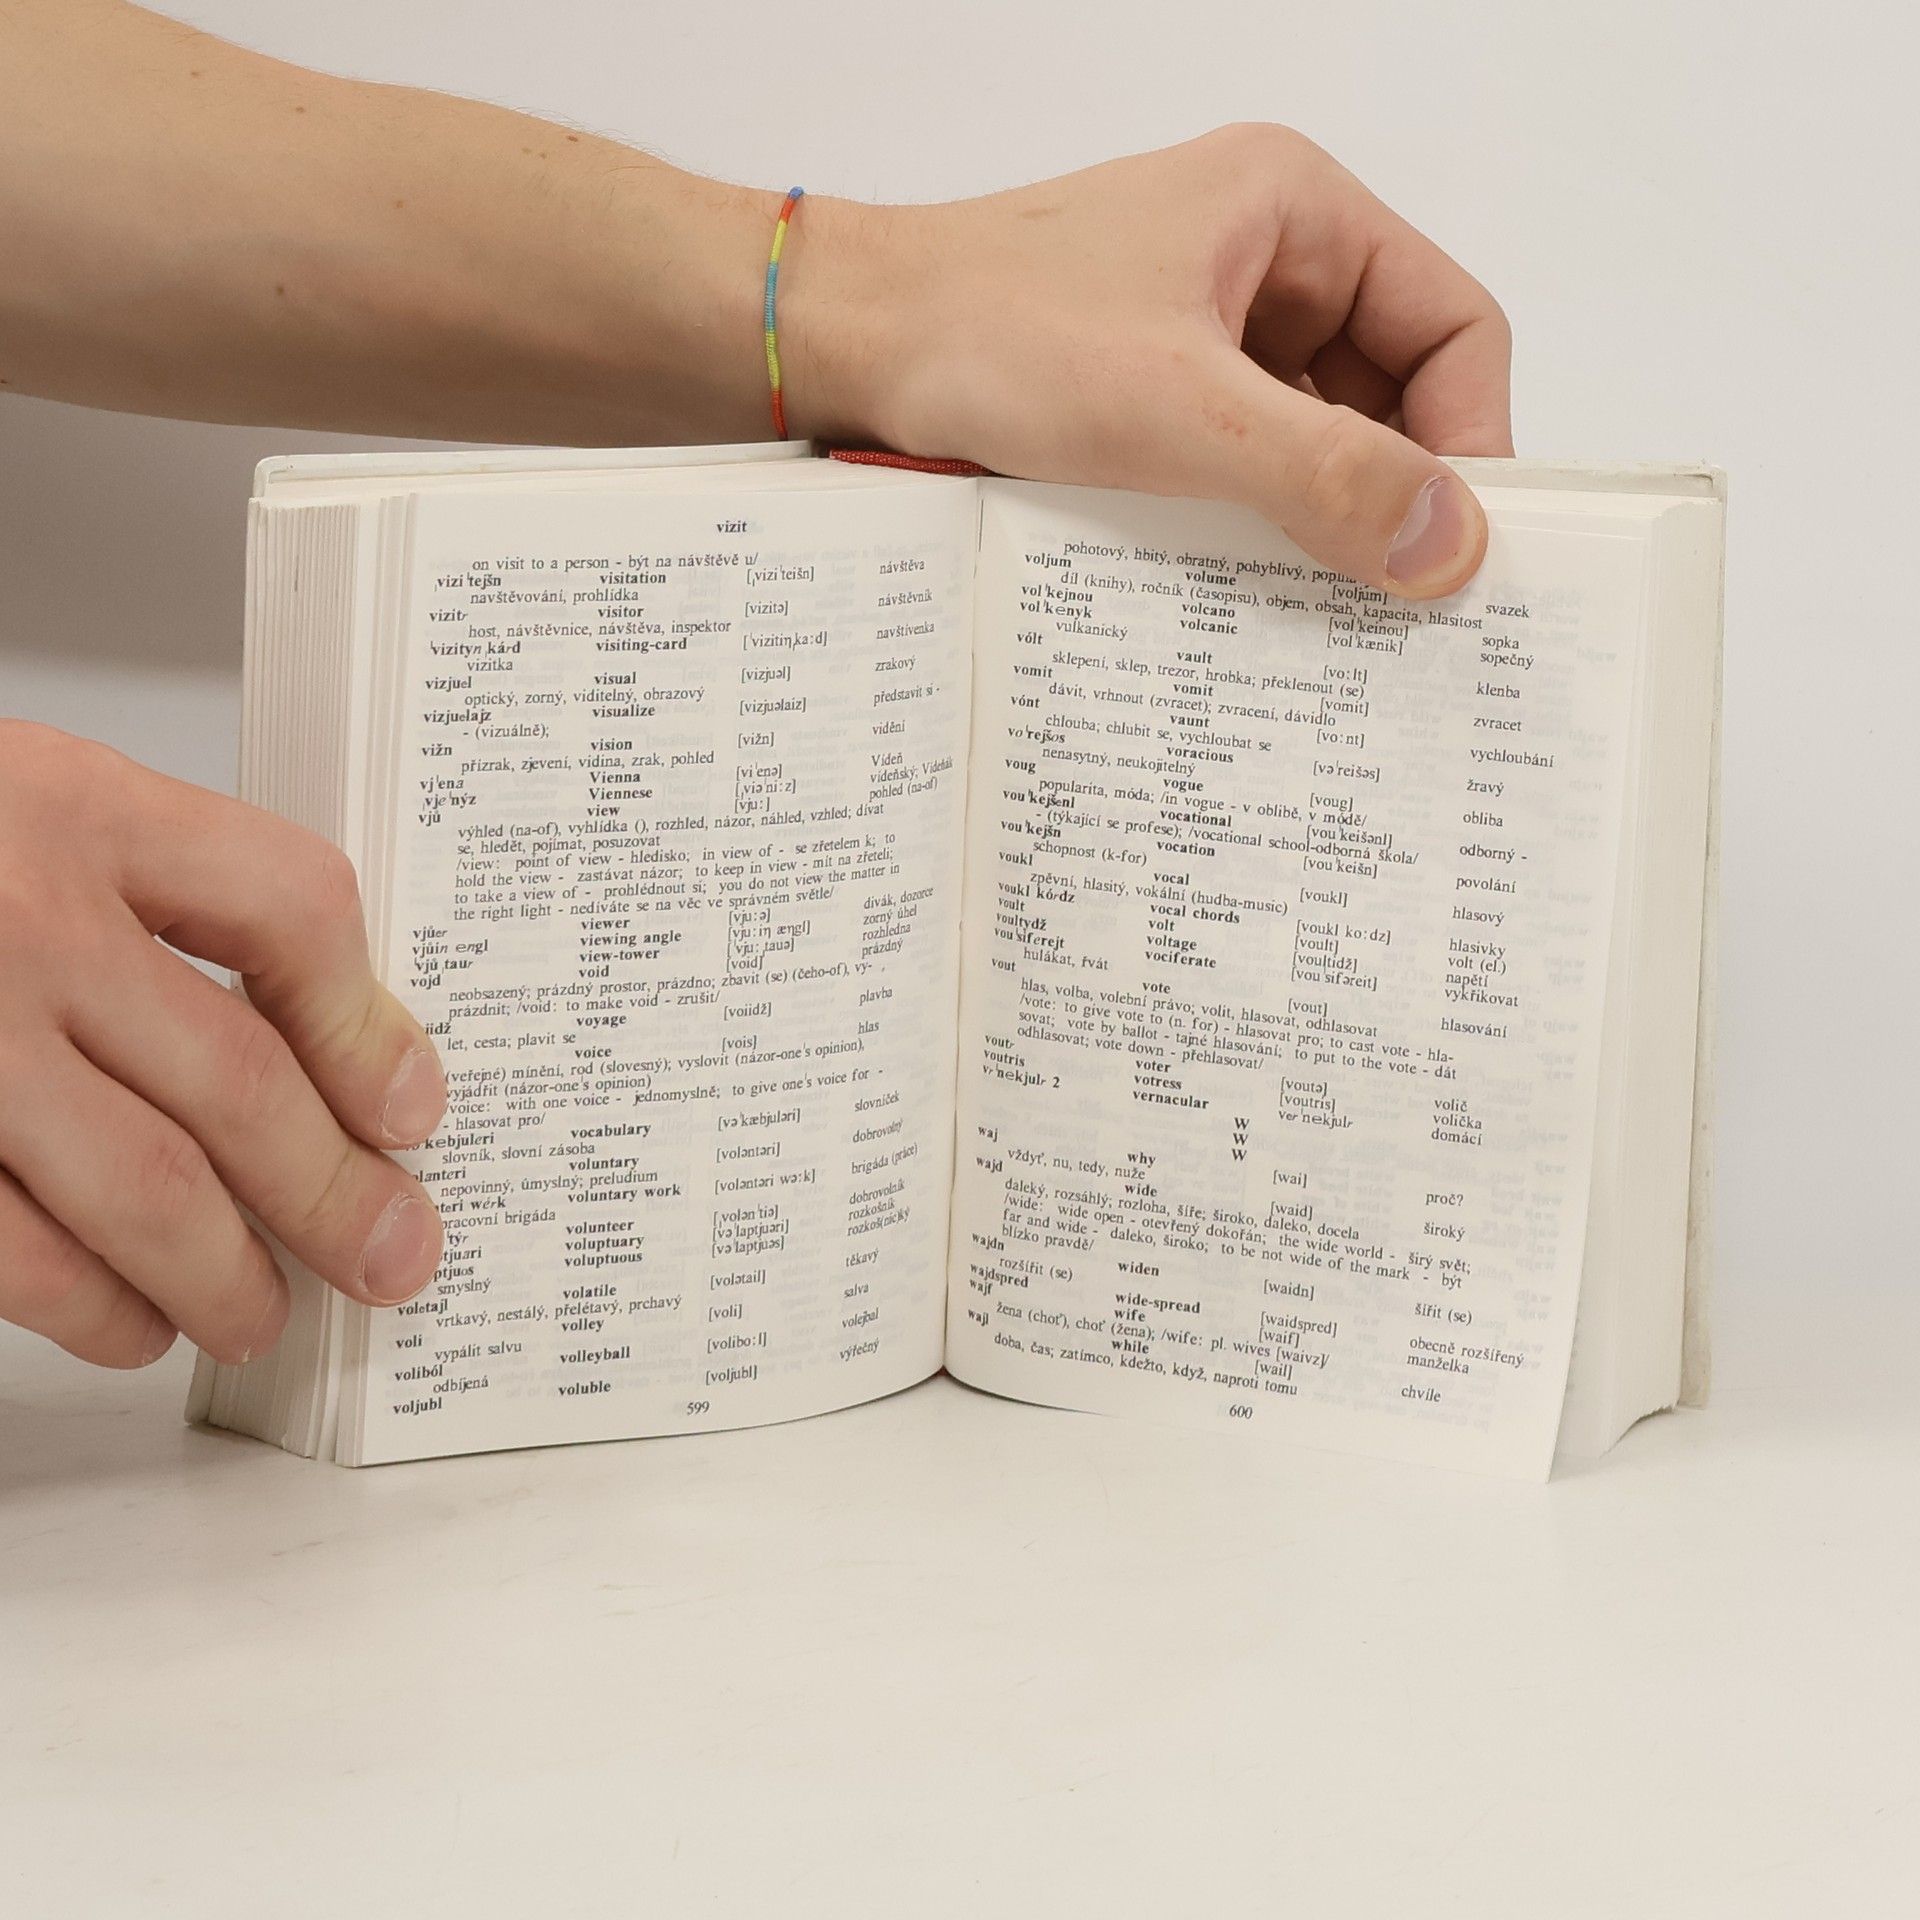 vizit
on visit to a person - být na návštěvě u/
ˌvizi ˈtejšn visitation [ˌviziˈteišn] návštěva
navštěvování, prohlídka
vizitr visitor [vizitə] návštěvník
host, návštěvnice, návštěva, inspektor
ˈvizityn ˌkárd visiting-card [ˈvizitiŋˌka:d] navštívenka
vizitka
vizjuel visual [vizjuəl] zrakový
optický, zorný, viditelný, obrazový
vizjuelajz visualize [vizjuəlaiz] představit si -
- (vizuálně);
vižn vision [vižn] vidění
přízrak, zjevení, vidina, zrak, pohled
vjˈena Vienna [viˈenə] Vídeň
ˌvjeˈnýz Viennese [ˌviəˈni:z] vídeňský; Vídeňák
vjů view [vju:] pohled (na-of)
výhled (na-of), vyhlídka (), rozhled, názor, náhled, vzhled; dívat
se, hledět, pojímat, posuzovat
/view: point of view - hledisko; in view of - se zřetelem k; to
hold the view - zastávat názor; to keep in view - mít na zřeteli;
to take a view of - prohlédnout si; you do not view the matter in
the right light - nedíváte se na věc ve správném světle/
vjůer viewer [vju:ə] divák, dozorce
vjůin engl viewing angle [vju:iŋ æŋgl] zorný úhel
ˈvjů ˌtaur view-tower [ˈvju:ˌtauə] rozhledna
vojd void [void] prázdný
neobsazený; prázdný prostor, prázdno; zbavit (se) (čeho-of), vy-
prázdnit; /void: to make void - zrušit/
iidž voyage [voiidž] plavba
let, cesta; plavit se
voice [vois] hlas
(veřejné) mínění, rod (slovesný); vyslovit (názor-one's opinion),
vyjádřit (názor-one's opinion)
/voice: with one voice - jednomyslně; to give one's voice for -
- hlasovat pro/
kebjuleri vocabulary [vəˈkæbjuləri] slovníček
slovník, slovní zásoba
olanteri voluntary [voləntəri] dobrovolný
nepovinný, úmyslný; preludium
nteri wérk voluntary work [voləntəri wə:k] brigáda (práce)
pracovní brigáda
ˈtýr volunteer [ˌvolənˈtiə] dobrovolník
tjuari voluptuary [vəˈlaptjuəri] rozkošník
ptjuos voluptuous [vəˈlaptjuəs] rozkoš(nic)ký
smyslný
voletajl volatile [volətail] těkavý
vrtkavý, nestálý, přelétavý, prchavý
voli volley [voli] salva
vypálit salvu
voliból volleyball [volibo:l] volejbal
odbíjená
voljubl voluble [voljubl] výřečný
599
pohotový, hbitý, obratný, pohyblivý,
voljum volume [voljum] svazek
díl (knihy), ročník (časopisu), objem, obsah, kapacita, hlasitost
volˈkejnou volcano [volˈkeinou] sopka
volˈkenyk volcanic [volˈkænik] sopečný
vulkanický
vólt vault [vo:lt] klenba
sklepení, sklep, trezor, hrobka; překlenout (se)
vomit vomit [vomit] zvracet
dávit, vrhnout (zvracet); zvracení, dávidlo
vónt vaunt [vo:nt] vychloubání
chlouba; chlubit se, vychloubat se
voˈrejšos voracious [vəˈreišəs] žravý
nenasytný, neukojitelný
voug vogue [voug] obliba
popularita, móda; /in vogue - v oblibě, v módě/
vouˈkejšenl vocational [vouˈkeišənl] odborný -
- (týkající se profese); /vocational school-odborná škola/
vouˈkejšn vocation [vouˈkeišn] povolání
schopnost (k-for)
voukl vocal [voukl] hlasový
zpěvní, hlasitý, vokální (hudba-music)
voukl kórdz vocal chords [voukl ko:dz] hlasivky
voult volt [voult] volt (el.)
voultydž voltage [voultidž] napětí
vouˈsiferejt vociferate [vouˈsifəreit] vykřikovat
hulákat, řvát
vout vote [vout] hlasování
hlas, volba, volební právo; volit, hlasovat, odhlasovat
/vote: to give vote to (n. for) - hlasovat pro; to cast vote - hla-
sovat; vote by ballot - tajné hlasování; to put to the vote - dát
odhlasovat; vote down - přehlasovat/
voutr voter [voutə] volič
voutris votress [voutris] volička
vrˈnekjulr 2 vernacular verˈnekjulr domácí
W
W
W
waj why [wai] proč?
vždyť, nu, tedy, nuže
wajd wide [waid] široký
daleký, rozsáhlý; rozloha, šíře; široko, daleko, docela
/wide: wide open - otevřený dokořán; the wide world - širý svět;
far and wide - daleko, široko; to be not wide of the mark - být
blízko pravdě/
wajdn widen [waidn] šířit (se)
rozšířit (se)
wajdspred wide-spread [waidspred] obecně rozšířený
wajf wife [waif] manželka
žena (choť), choť (žena); /wife: pl. wives [waivz]/
wajl while [wail] chvíle
doba, čas; zatímco, kdežto, když, naproti tomu
600